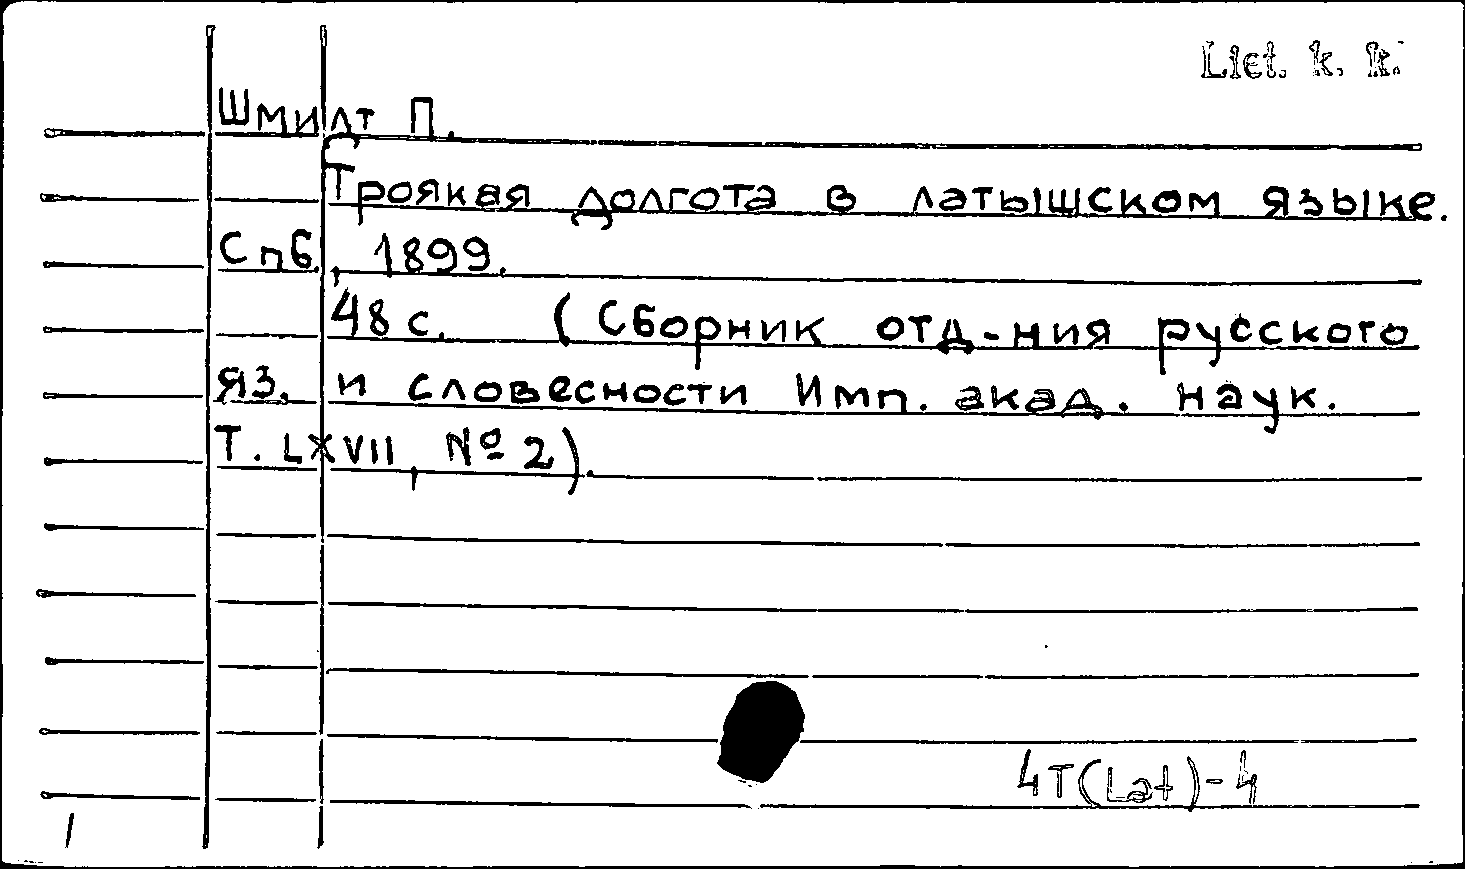 Liet. k. k.
Шмидт П.
Троякая долгота в латышском языке.
Спб., 1899.
48 с. (Сборник отд-ния русского
яз. и словесности Имп. акад. наук.
Т. LXVII, № 2).
4T(Lat)-4